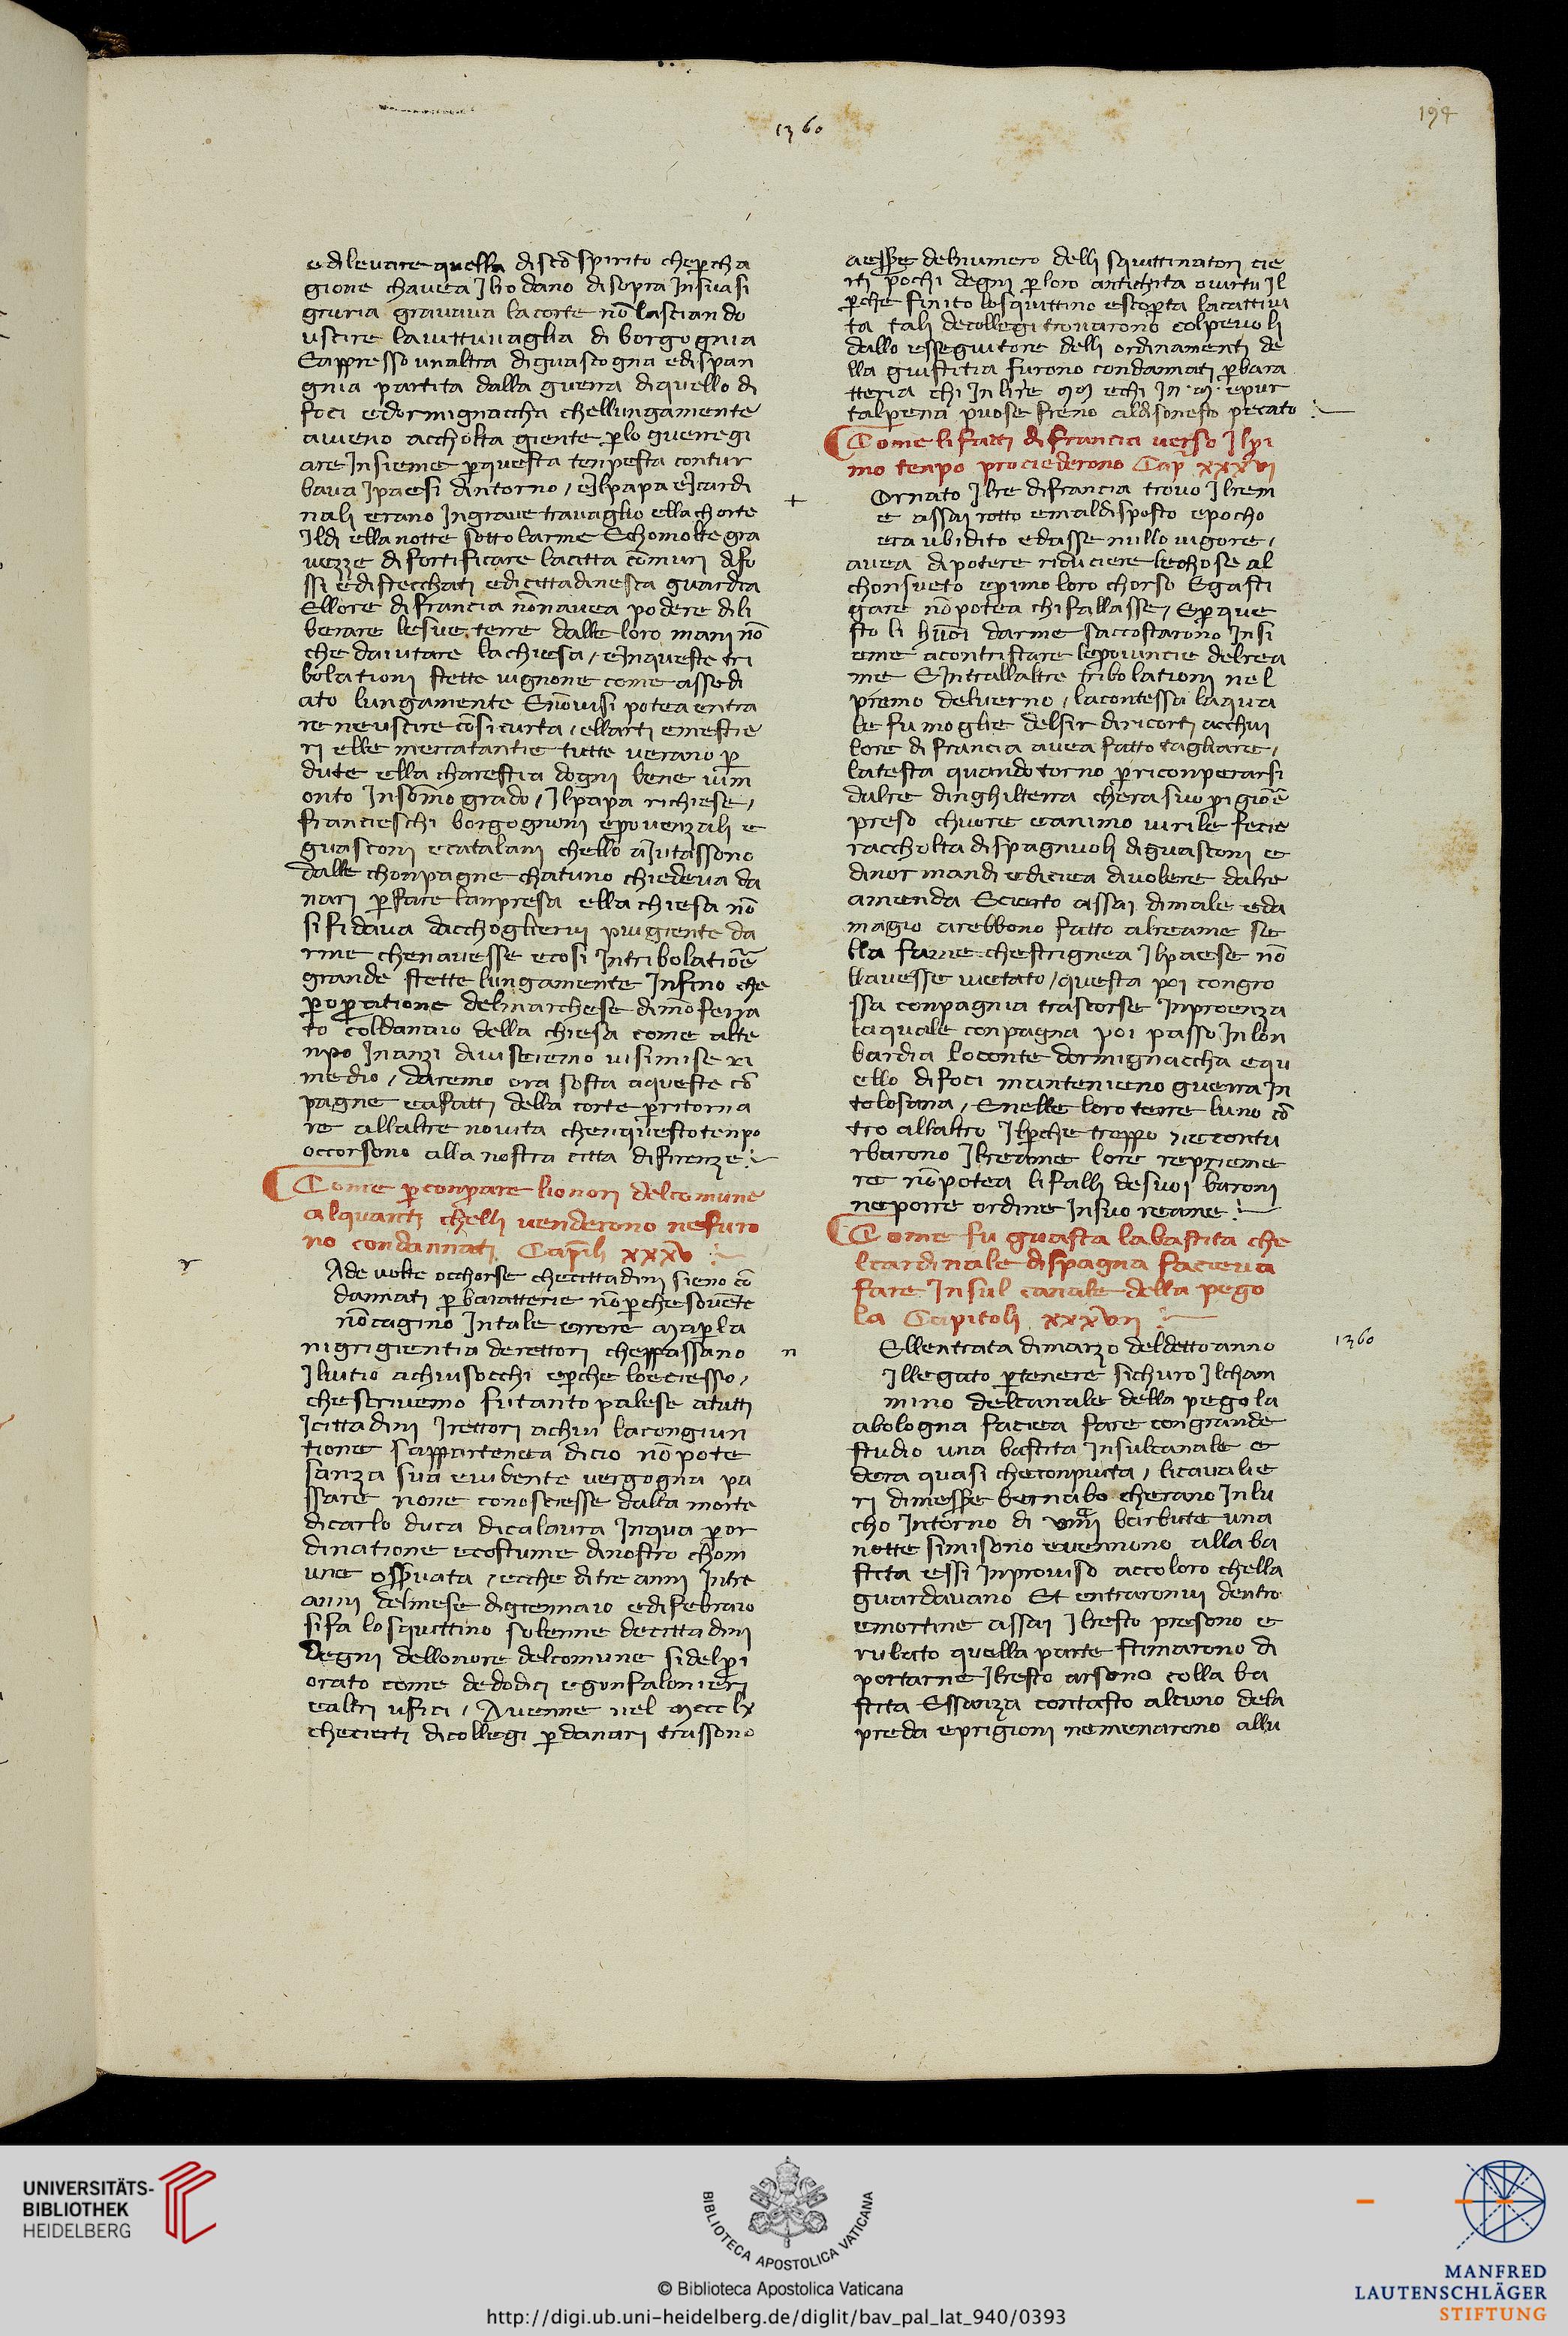 1360
194
e di levare quella di sc̄o spirito che p̱cha
gione chavea i llo dano di sopra in sua si
gnria gravava la corte nō lasciando
uscire la vittuvaglia di borgognia
E appresso unaltra di guascogna e di span
gnia partita dalla guerra di quello di
foci e dormignaccha chellungamente
avieno accholta giente p̱ lo guerregi
are insieme p̱ questa tenpesta contur
bava i paesi dintorno / e il papa e i cardi
nali erano in grave travaglio ella chorte
il di ella notte sotto larme E cho molte gra
vezze di fortificare la citta cō muri di fo
ssi e di steccchati e di cittadinesca guardia
Ellore di francia nōn avea podere di li
berare le sue terre dalle loro mani nō
che daiutare la chiesa / e in queste tri
bolationi stette vignone come assedi
ato lungamente E nō vi si potea entra
re ne uscire cō sicurta / ellarti e mestie
ri elle mercatantie tutte verano p̱
dute ella charestia dogni bene vi m
onto in somō grado / il papa richiese /
francieschi borgognoni e p̱ovenzali e
guasconi e catalani chello aiutassono
dalle chonpagne chatuno chiedeva da
nari p̱ fare lanpresa ella chiesa nō
si fidava dacchogliervi piu giente da
rme che navesse e cosi in tribolatiōe
grande stette lungamente infino che
p̱ op̱atione del marchese di mō ferra
to col danaio della chiesa come al te
npo inanzi diviseremo vi si mise ri
medio / daremo ora sosta a queste cō
pagne e a fatti della corte p̱ ritorna
re allaltre novita che n questo tenpo
occorsono alla nostra citta di firenze
Come p̱ conp̱are lionori del comune
alquanti chelli venderono ne furo
no condannati Cap̄li xxxv
r
Ade volte occhorse che cittadini sieno cō
dannati p̱ baratterie nō p̱che sovente
nō cagino in tale errore ma p̱ la
nigrigientia de rettori che ppassano
il vitio a chiusocchi e p̱che lo eciesso /
che scrivemo fu tanto palese a tutti
i cittadini i rettori a chui la congiun
tione sappartenea di cio nō pote
sanza sua evidente vergogna pa
ssare none conosciesse dalla morte
di carlo duca di calavra in qua p̱ or
dinatione e costume di nostro chom
une osservata / e cche di tre anni in tre
anni del mese di giennaio e di febraio
si fa lo squittino solenne de cittadini
degni dellonore del comune si del p̱i
orato come de dodici e gonfalonieri
e altri ufici / Avenne nel mccclx
che cierti di collegi p̱ danari trassono
a essere del numero delli squittinatori cie
rti pochi degni p̱ loro antichita o virtu il
p̱che finito lo squittino e scop̱ta la cattivi
ta tali de collegi trovarono colpevoli
dallo esseguitore delli ordinamenti de
lla giustitia furono condannati p̱ bara
tteria chi in lire mm e chi in m e pur
tal pena puose freno al disonesto peccato
Come li fatti di francia verso il p̱i
mo tenpo prociederono Cap̄ xxxvi
+
Ornato il re di francia trovo il rem
e assai rotto e mal disposto e pocho
era ubidito e dasse nullo vigore /
avea di potere riduciere le chose al
chonsueto e p̱imo loro chorso E gasti
gare nō potea chi fallasse / E p̱ que
sto li huōi darme saccostarono insi
eme a contristare le p̱ovincie del rea
me E intrallaltre tribolationi nel
p̱iemo del verno / la contessa la qua
le fu moglie del sir di ricorti a cchui
lore di francia avea fatto tagliare /
la testa quando torno p̱ riconperarsi
dal re dinghilterra chera suo p̱igiōe
preso chuore e animo virile fecie
raccholta di spagnuoli di guasconi e
di normandi e diciea di volere dal re
amenda E cierto assai di male e da
magio arebbono fatto al reame se
lla fame che strignea il paese nō
llavesse vietato / questa poi congro
ssa conpagnia trascorse in proenza
la quale conpagna poi passo in lon
bardia lo conte dormignaccha e qu
ello di foci mantenieno guerra in
tolosana / E nelle loro terre luno cō
tro allaltro il p̱che troppo ne contu
rbarono il reame lore repriemie
re nō potea li falli de suoi baroni
ne porre ordine in suo reame
Come fu guasta la bastita che
l cardinale di spagna facieva
fare in sul canale della pego
la Capitoli xxxvii
n
Ellentrata di marzo del detto anno
1360
il legato p̱ tenere sichuro il cham
mino del canale della pegola
a bologna faciea fare con grande
studio una bastita in sul canale e
dera quasi che conpiuta / li cavalie
ri di messer bernabo cherano in lu
cho intorno di barbute una
notte si misono e vennono alla ba
stita e ssi inproviso a ccoloro chella
guardavano Et entraronvi dentro
e mortine assai il resto presono e
rubato quella parte stimarono di
portarne il resto arsono colla ba
stita E ssanza contasto alcuno dela
preda e prigioni ne menarono allu
UNIVERSITÄTS-
BIBLIOTHEK
HEIDELBERG
BIBLIOTECA APOSTOLICA VATICANA
© Biblioteca Apostolica Vaticana
http://digi.ub.uni-heidelberg.de/diglit/bav_pal_lat_940/0393
MANFRED
LAUTENSCHLÄGER
STIFTUNG